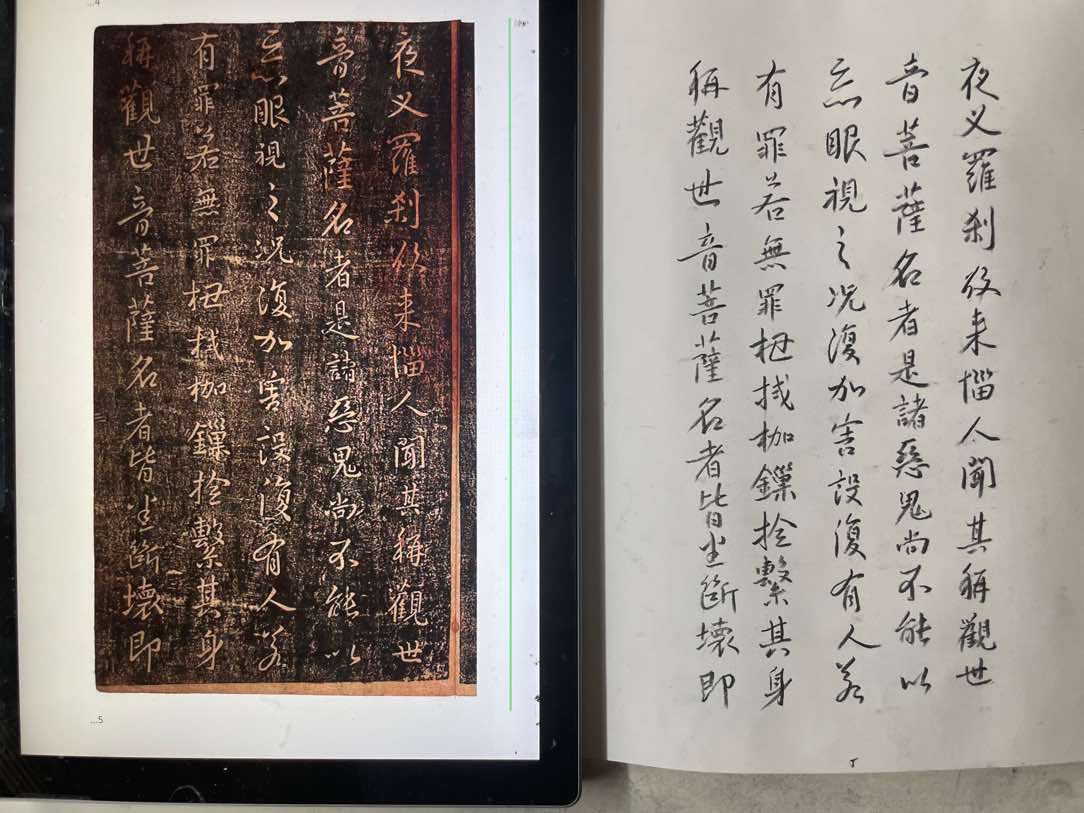 ...4
夜叉羅刹欲来惱人聞其稱觀世
音菩薩名者是諸惡鬼尚不能以
惡眼視之況復加害設復有人若
有罪若無罪杻械枷鏁撿繫其身
稱觀世音菩薩名者皆悉斷壞即
...5
夜叉羅刹欲来惱人聞其稱觀世
音菩薩名者是諸惡鬼尚不能以
惡眼視之況復加害設復有人若
有罪若無罪杻械枷鏁撿繫其身
稱觀世音菩薩名者皆悉斷壞即